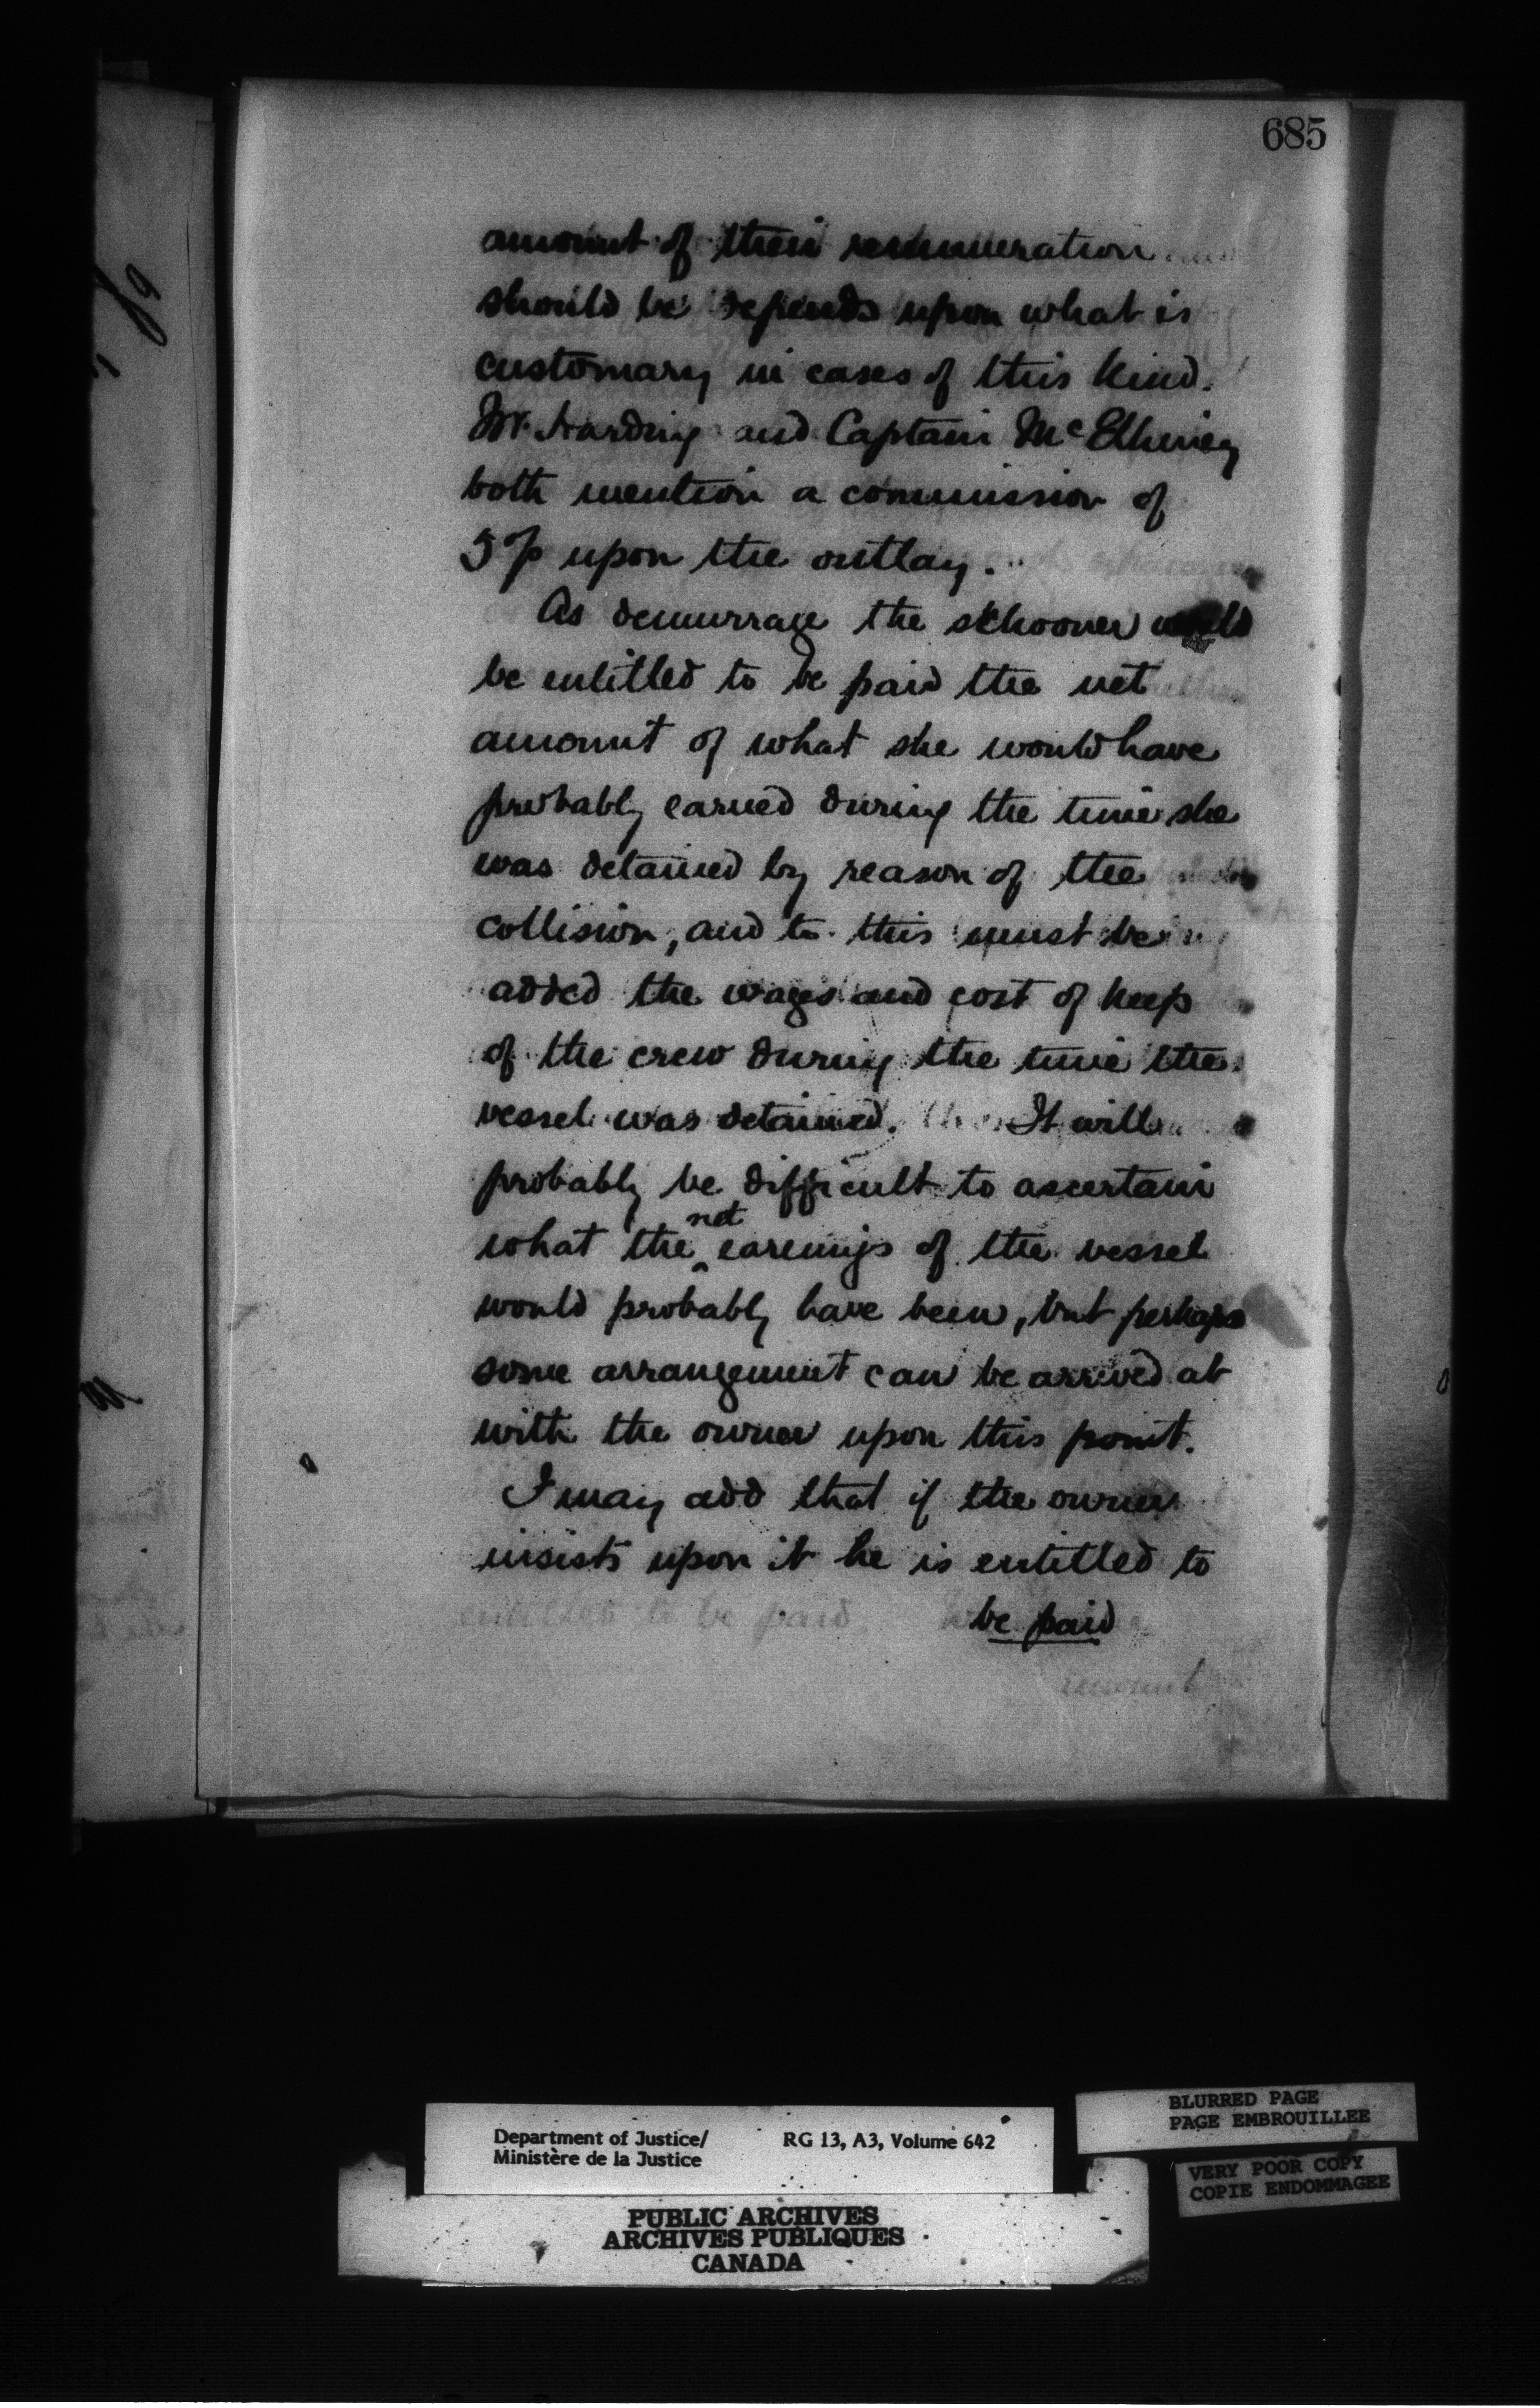 685
amount of their remuneration
should be depends upon what is
customary in cases of this kind.
Mr. Harding and Captain McElhiney
both mention a commission of
5% upon the outlay.
As demurrage the schooner would
be entitled to be paid the net
amount of what she would have
probably earned during the time she
was detained by reason of the
collision, and to this must be
added the wages and cost of keep
of the crew during the time the
vessel was detained. It will
probably be difficult to ascertain
what the net earnings of the vessel
would probably have been, but perhaps
some arrangement can be arrived at
with the owner upon this point.
I may add that if the owner
insists upon it he is entitled to
be paid
Department of Justice/ RG 13, A3, Volume 642
Ministère de la Justice
PUBLIC ARCHIVES
ARCHIVES PUBLIQUES
CANADA
BLURRED PAGE
PAGE EMBROUILLEE
VERY POOR COPY
COPIE ENDOMMAGEE